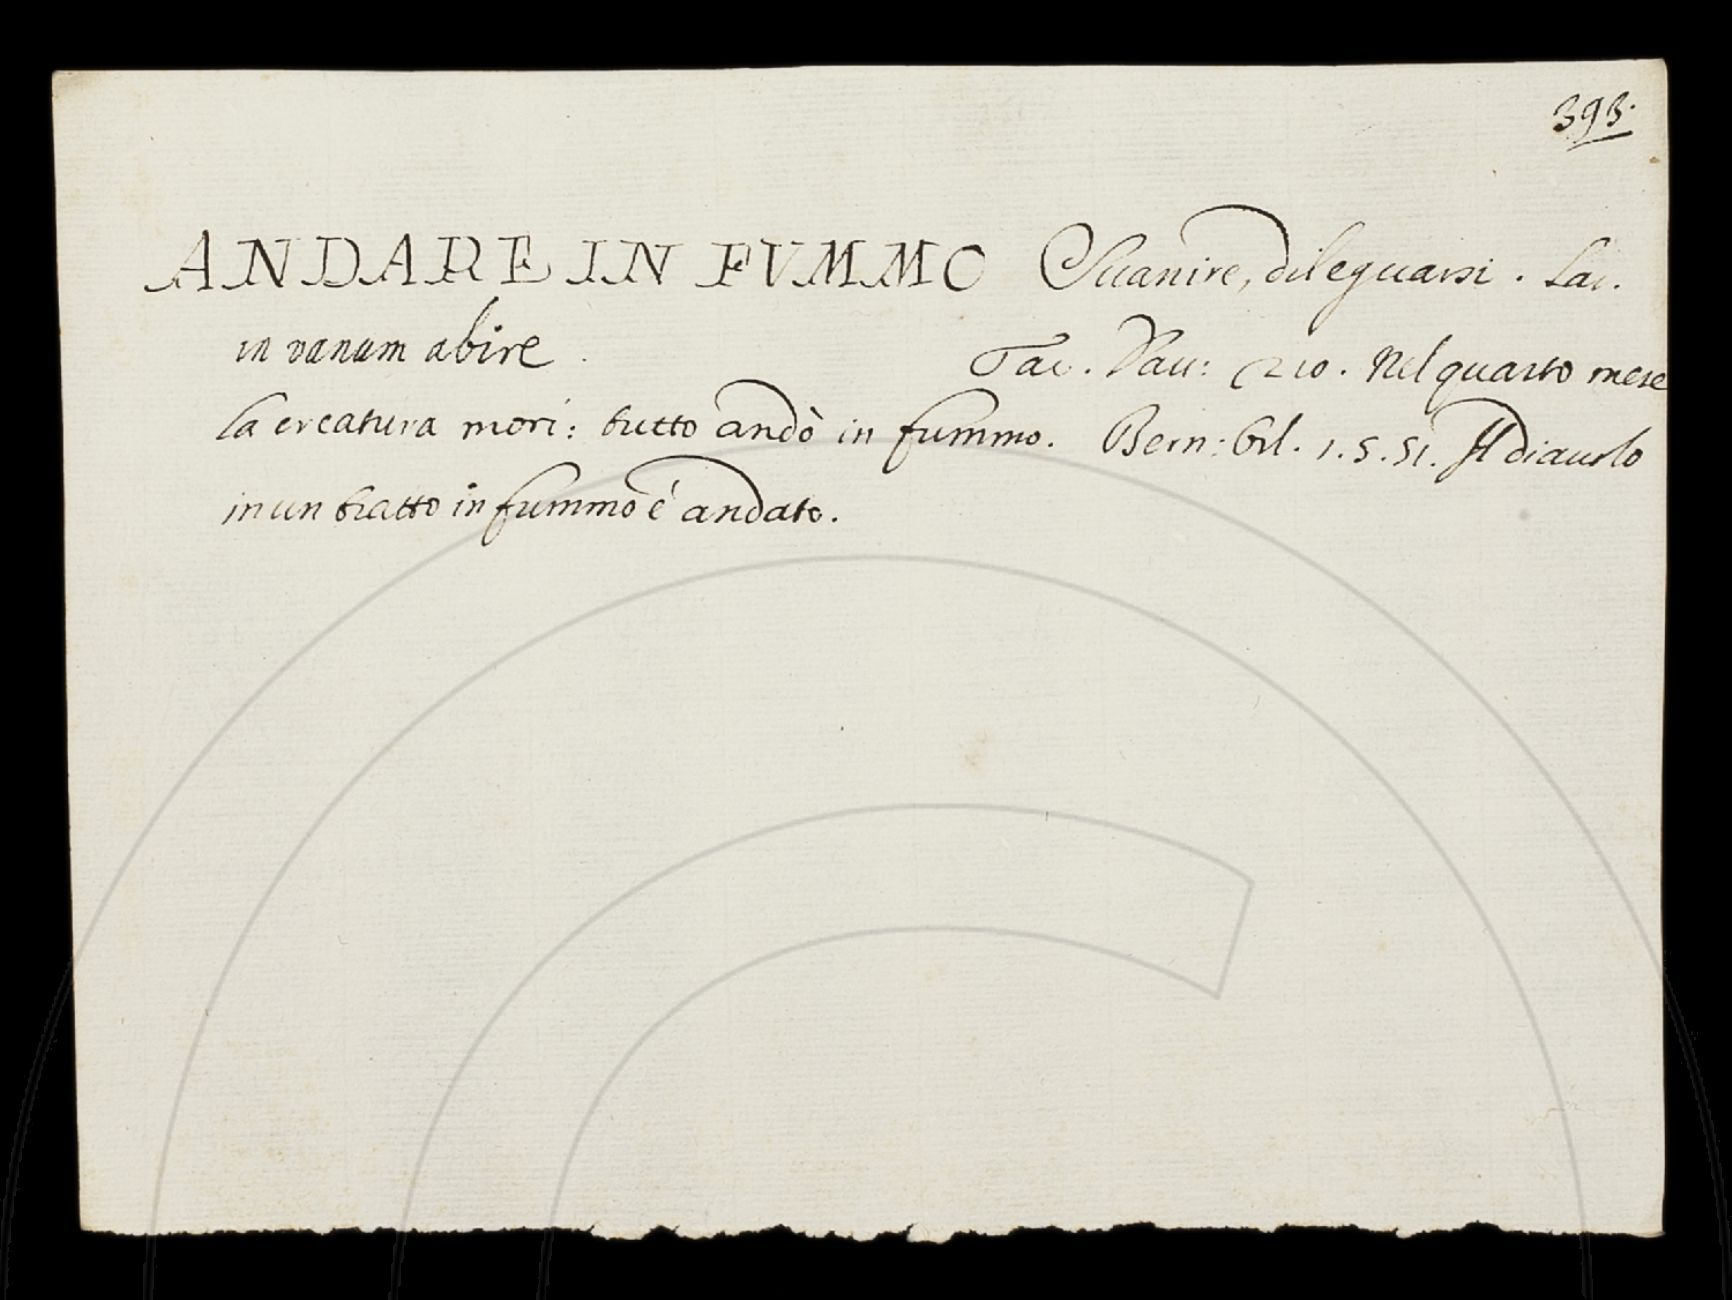 393.
ANDARE IN FVMMO Suanire, dileguarsi. Lat.
in vanum abire. Tac. Dau: 210. Nel quarto mese
la creatura morì: tutto andò in fummo. Bern: Orl. 1.5.51. Il diauolo
in un tratto in fummo è andato.